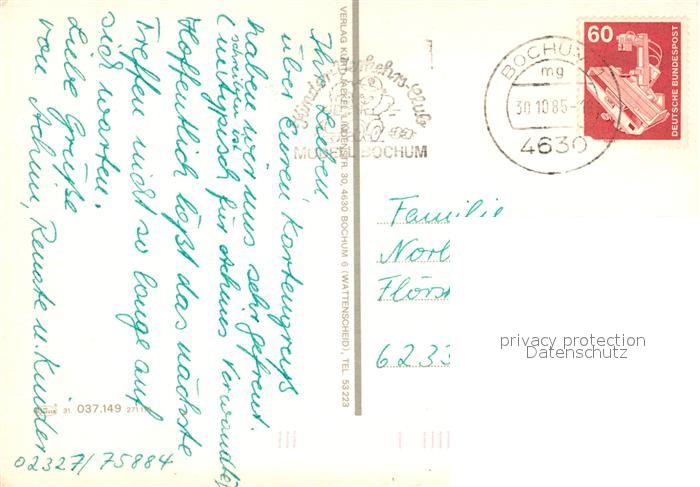 Ihr Lieben,
über Euren Kartengruß
haben wir uns sehr gefreut.
(untypisch für Achims Verwandte)
schreiben ist
Hoffentlich läßt das nächste
Treffen nicht so lange auf
sich warten.
Liebe Grüße
von Achim, Renate u. Kinder
02327/75884
VERLAG KURT 30, 4630 BOCHUM 6 (WATTENSCHEID), TEL. 53223
31. 037.149
Kinder-Verkehrs-Club
BOCHUM
BOCHUM
mg
30.10.85
4630
60
DEUTSCHE BUNDESPOST
Familie
Norb
Flörs
6233
privacy protection
Datenschutz